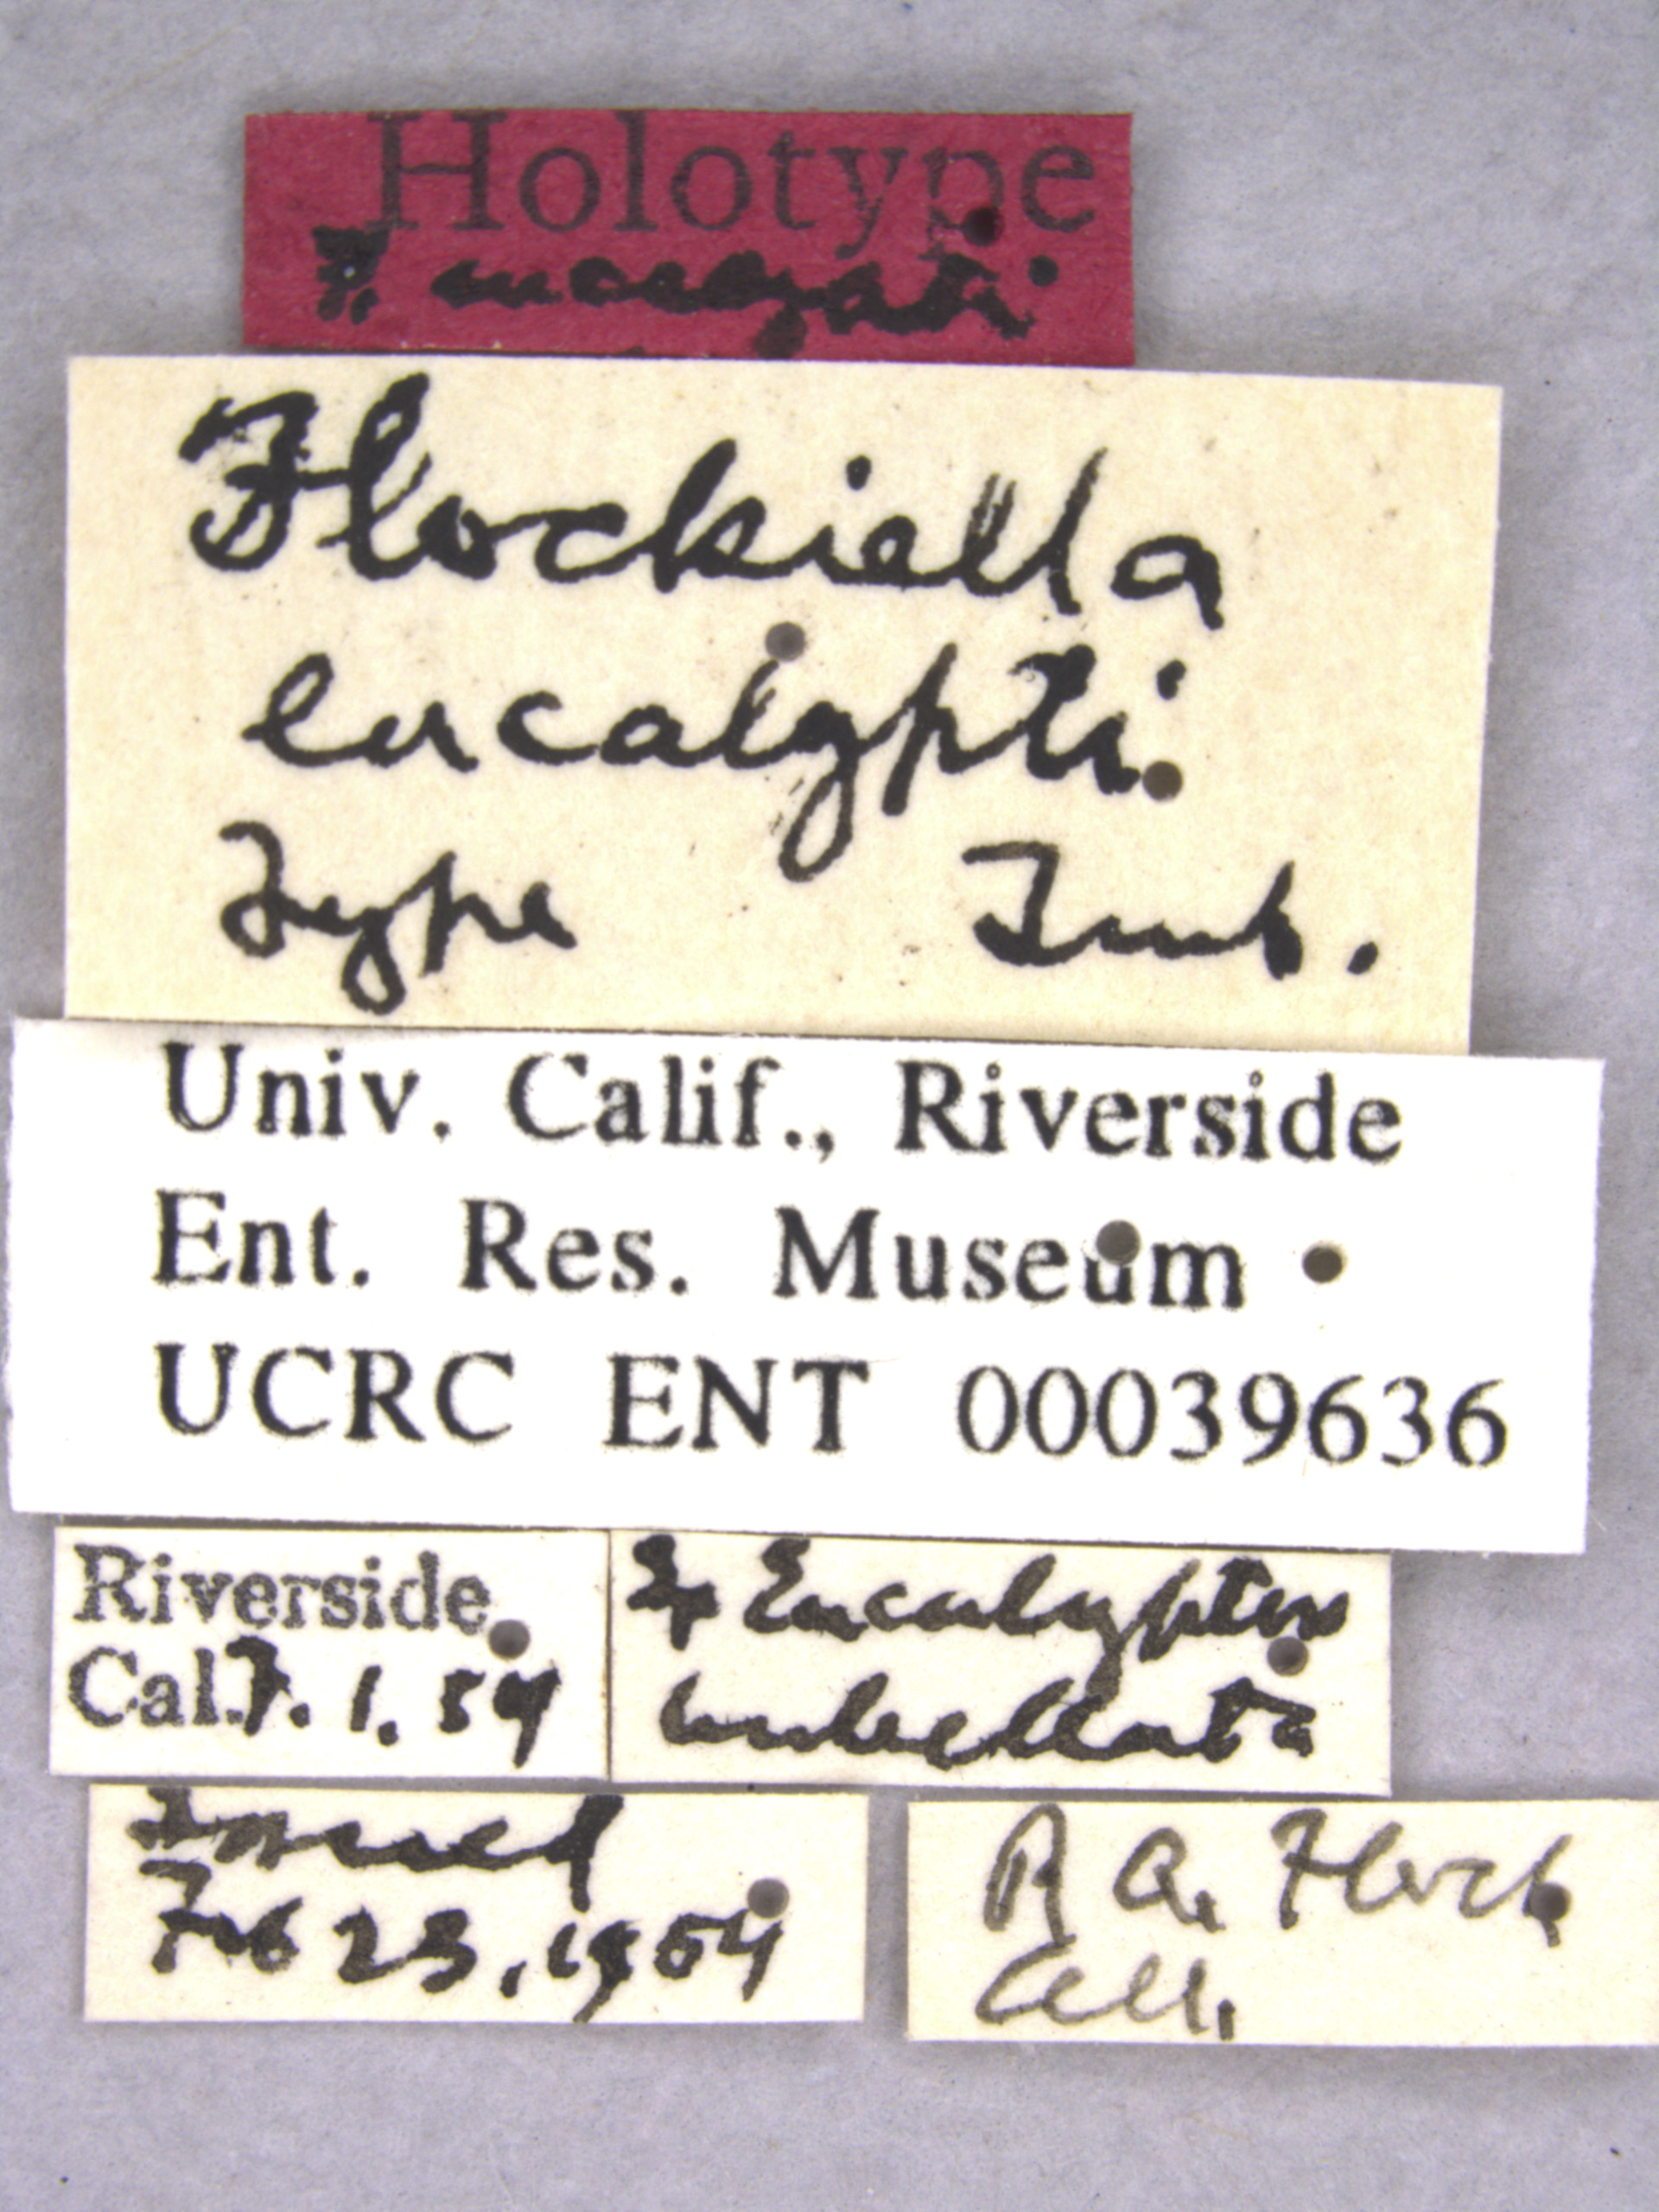 Holotype
F. eucalypti
Flockiella
eucalypti
Type Timb.
Univ. Calif., Riverside
Ent. Res. Museum
UCRC ENT 00039636
Riverside
Cal. 1. 54
Eucalyptus
Feb 23, 1954
R A. Flock
Coll.